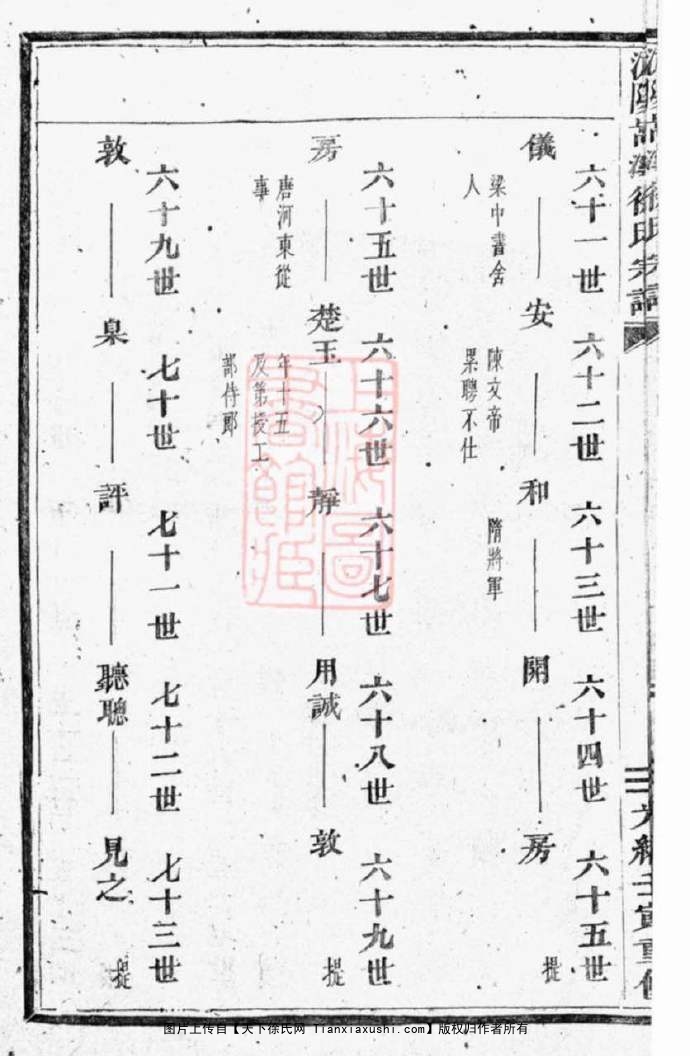 徐氏宗譜
六十一世 六十二世 六十三世 六十四世 六十五世
儀 安 和 開 房
梁中書舍
人
陳文帝
累聘不仕
隋將軍
提
六十五世 六十六世 六十七世 六十八世 六十九世
房 楚玉 靜 用誠 敦
唐河東從
事
年十五
及第授工
部侍郎
提
六十九世 七十世 七十一世 七十二世 七十三世
敦 臬 評 聽聰 見之
提
上海圖
書館藏
图片上传自【天下徐氏网 tianxiaxushi.com】版权归作者所有